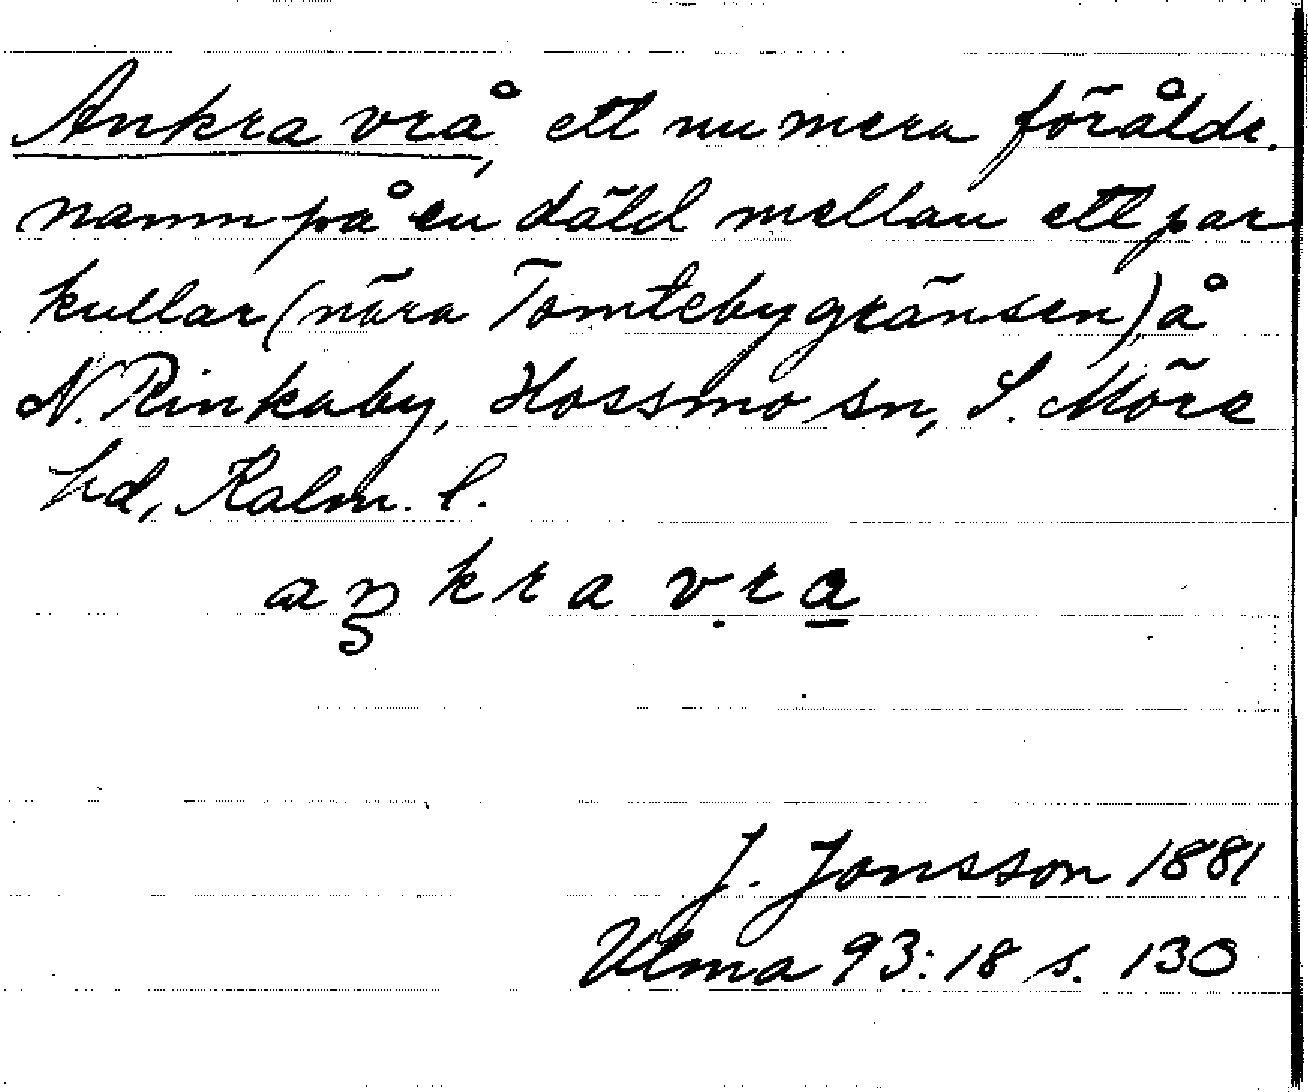 Ankra vrå, ett nu mera föråldr.
namn på en däld mellan ett par
kullar (nära Tomtebygränsen) å
N. Rinkaby, Hossmo sn, S. Möre
hd, Kalm. l.
aŋkra vra
J. Jonsson 1881
Ulma 93:18 s. 130